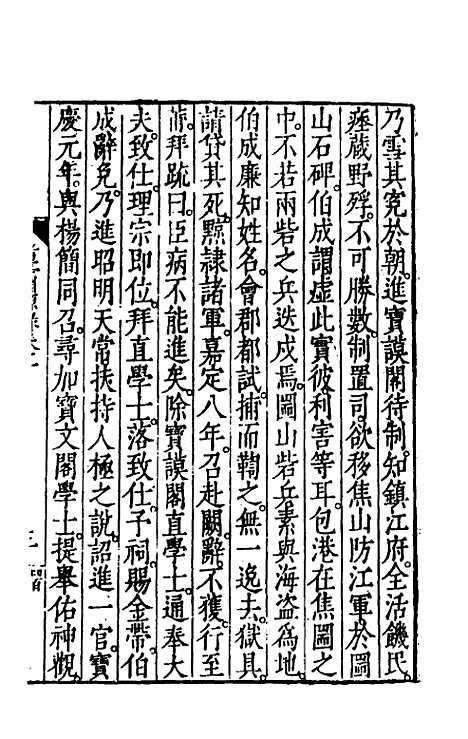 乃雪其寃於朝。進寶謨閣待制。知鎮江府。全活饑民。
瘞藏野殍。不可勝數。制置司。欲移焦山防江軍。於圌
山石碑。伯成謂虛此實彼。利害等耳。包港在焦圌之
中。不若兩砦之兵迭戍焉。圌山砦兵。素與海盜為地。
伯成廉知姓名。會郡都試。捕而鞫之。無一逸去。獄具。
請貸其死。黥隸諸軍。嘉定八年。召赴闕。辭。不獲。行至
莆。拜疏曰。臣病不能進矣。除寶謨閣直學士。通奉大
夫。致仕。理宗即位。拜直學士。落致仕。予祠。賜金帶。伯
成辭免。乃進昭明天常。扶持人極之說。詔進一官。寶
慶元年。與楊簡同召。尋加寶文閣學士。提舉佑神觀。